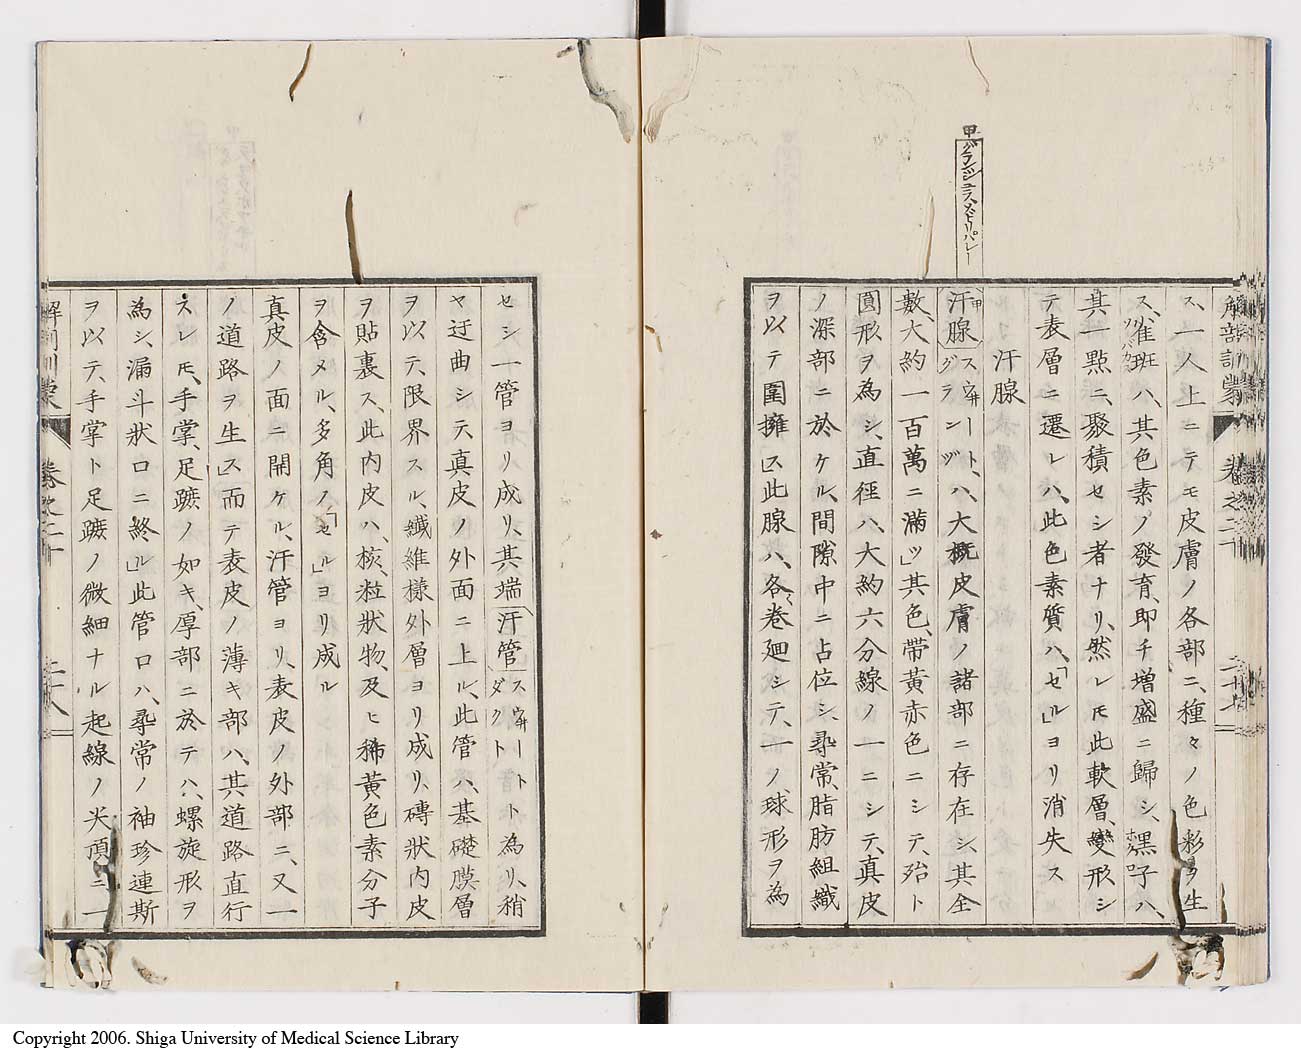 甲バランジュスメヒリパレー
解剖訓蒙 卷之二 二十七
ス、一人上ニテモ皮膚ノ各部ニ、種々ノ色彩ヲ生
ス、雀斑ハ、其色素ノ發育、即チ增盛ニ歸シ、黑子ハ、
其一點ニ、聚積セシ者ナリ、然レモ此軟層、變形シ
テ表層ニ遷レハ、此色素質ハ、「セル」ヨリ消失ス
汗腺
汗腺スウ井ート、グランヅハ、大概皮膚ノ諸部ニ存在シ、其全
數、大約一百萬ニ滿ツ」其色、帶黃赤色ニシテ、殆ト
圓形ヲ為シ、直徑ハ、大約六分線ノ一ニシテ、真皮
ノ深部ニ於ケル、間隙中ニ占位シ、尋常、脂肪組織
ヲ以テ圍擁ス」此腺ハ、各〻卷廻シテ、一ノ球形ヲ為
セシ一管ヨリ成リ、其端汗管スウ井ートダクトト為リ、稍
ヤ迂曲シテ、真皮ノ外面ニ上ル、此管ハ、基礎膜層
ヲ以テ、限界スル、纖維樣外層ヨリ成リ、磚狀内皮
ヲ貼裏ス、此内皮ハ、核、粒狀物、及ヒ稀黃色素分子
ヲ含メル、多角ノ「セル」ヨリ成ル
真皮ノ面ニ開ケル、汗管ヨリ、表皮ノ外部ニ、又一
ノ道路ヲ生ス」而テ表皮ノ薄キ部ハ、其道路直行
スレモ、手掌、足蹠ノ如キ、厚部ニ於テハ、螺旋形ヲ
為シ、漏斗狀口ニ終ル」此管口ハ、尋常ノ袖珍連斯
ヲ以テ、手掌ト足蹠ノ微細ナル起線ノ尖頂ニ一
解剖訓蒙 卷之二 二十八
Copyright 2006. Shiga University of Medical Science Library